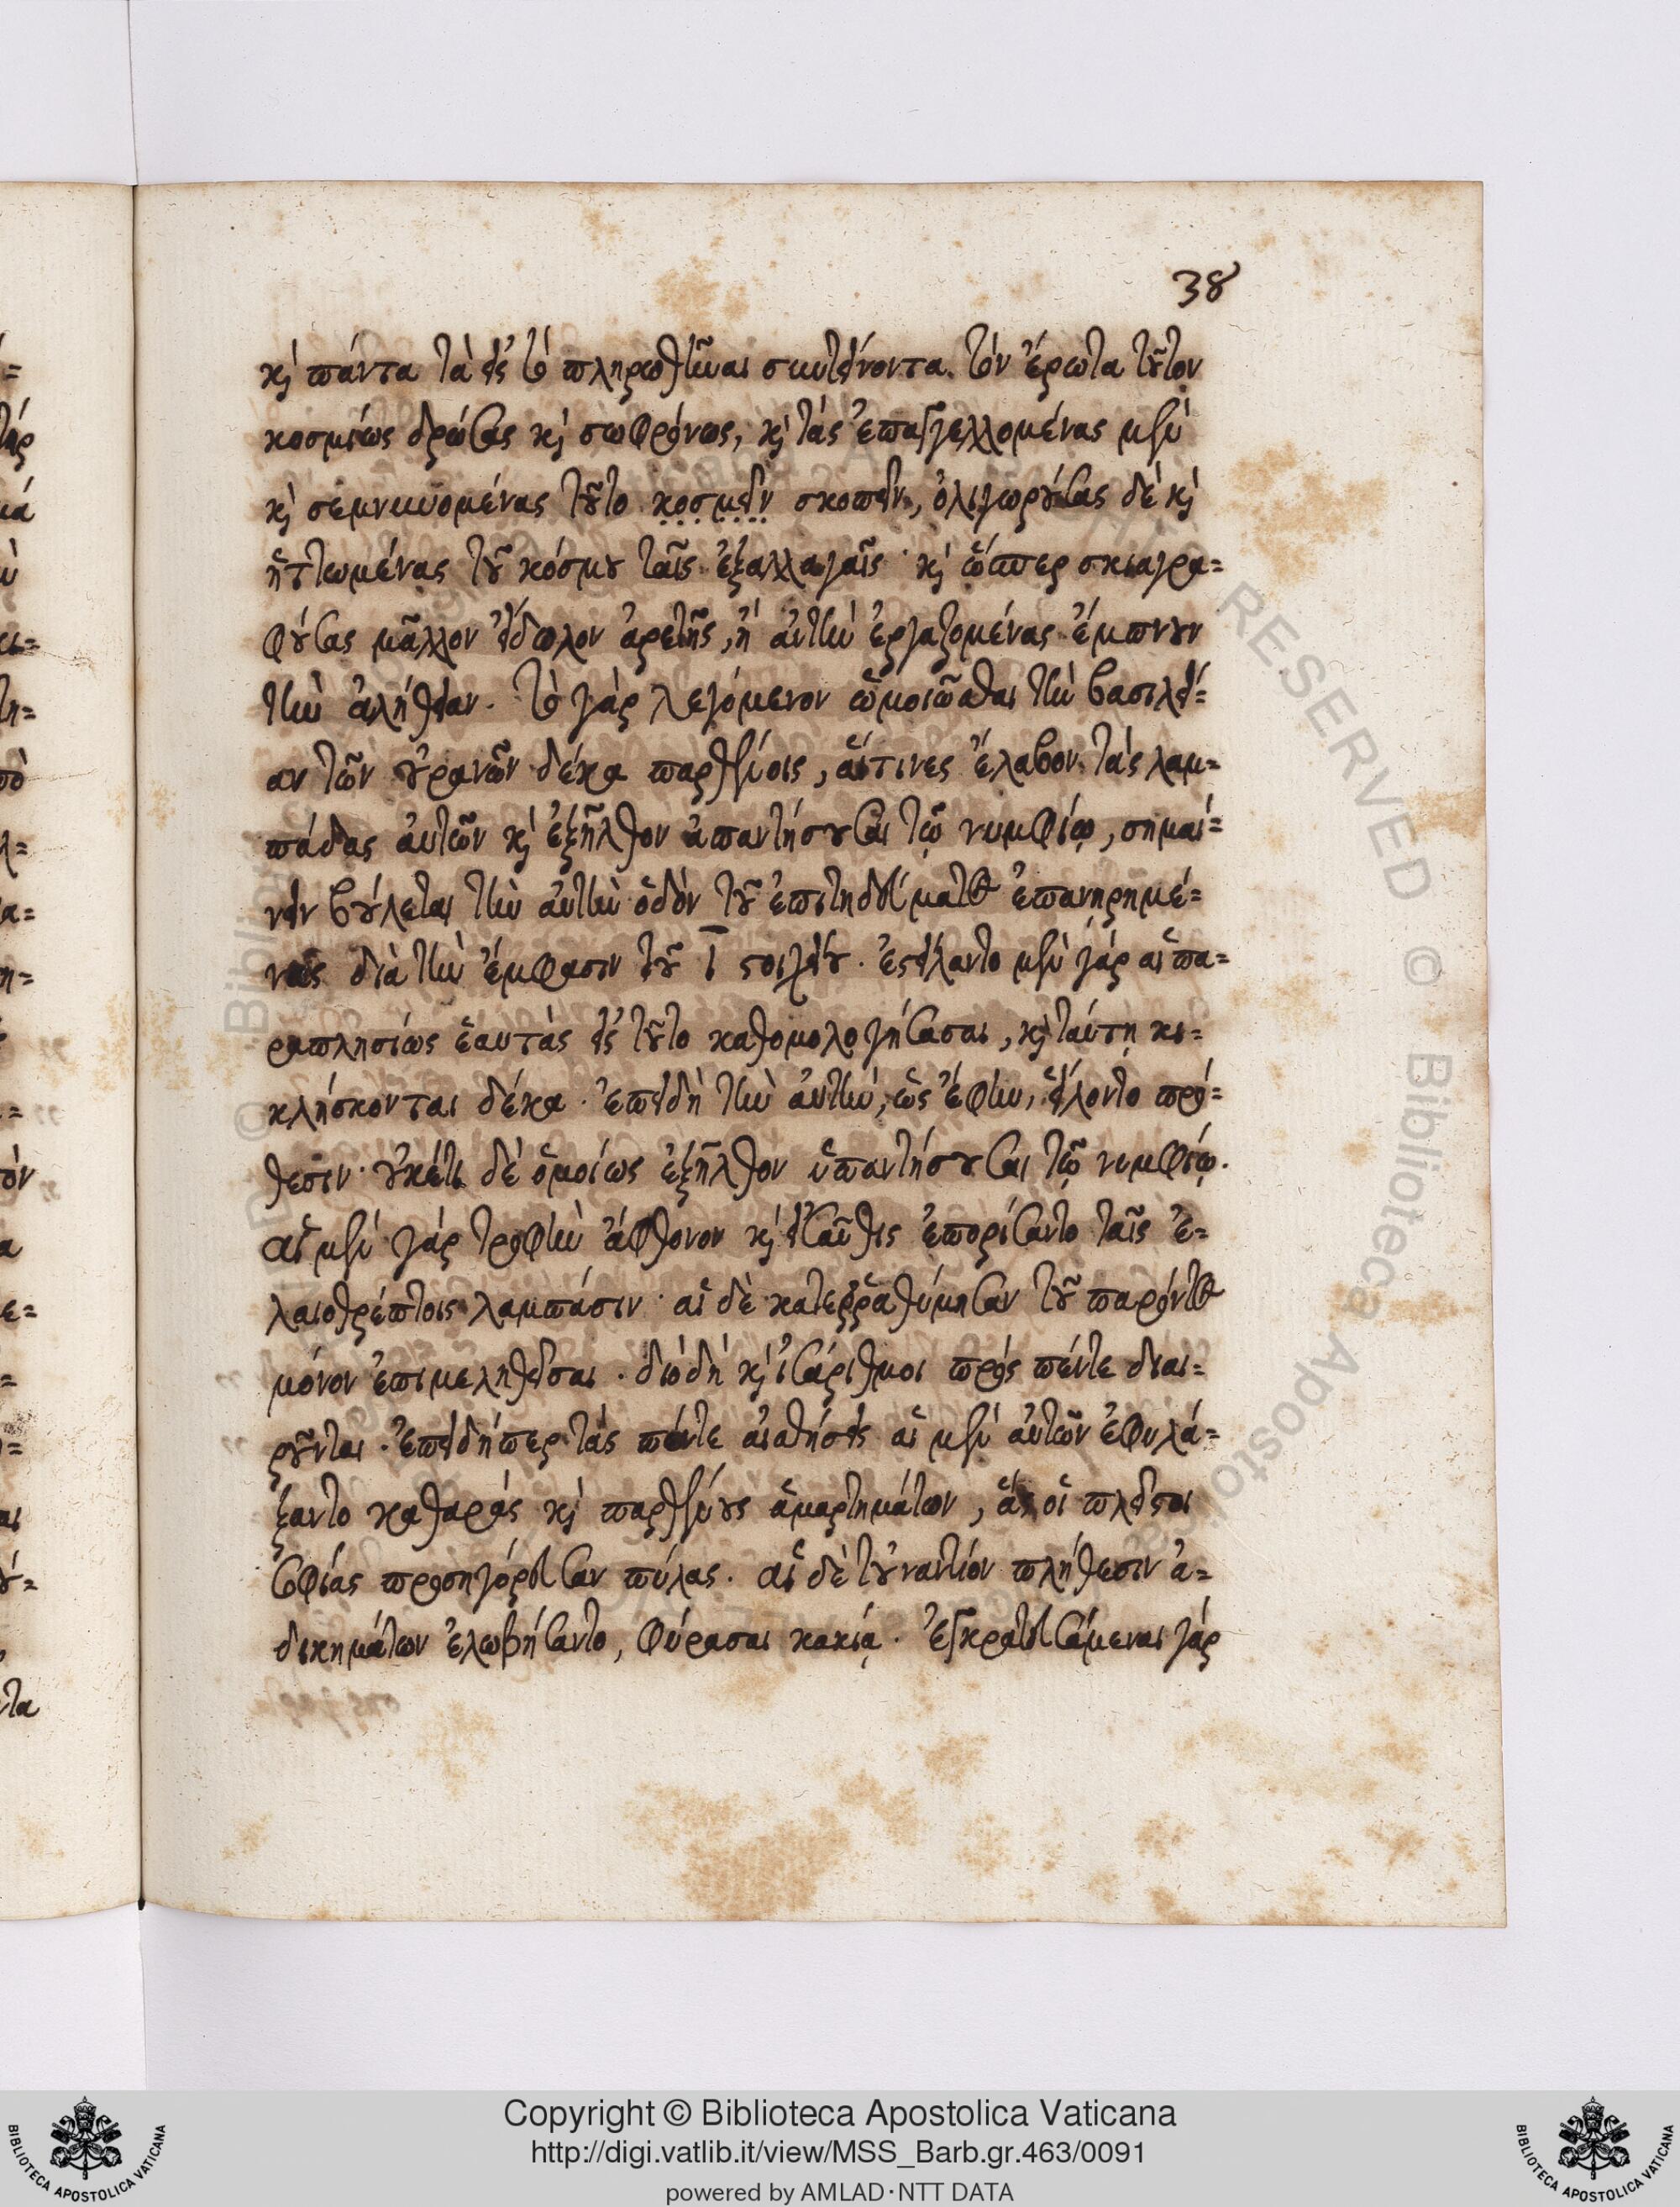 38
καὶ πάντα τὰ εἰς τὸ πληρωθῆναι συντείνοντα τὸν ἔρωτα τοῦτον
κοσμίως δρώσας καὶ σωφρόνως, καὶ τὰς ἐπαγγελλομένας μὲν
καὶ σεμνυνομένας τοῦτο κοσμεῖν σκοπεῖν, ὀλιγωρούσας δὲ καὶ
ἡττωμένας τοῦ κόσμου ταῖς ἐξαλλαγαῖς· καὶ ὥσπερ σκιαγρα=
φούσας μᾶλλον εἴδωλον ἀρετῆς, ἢ αὐτὴν ἐργαζομένας ἔμπνουν
τὴν ἀλήθειαν. τὸ γὰρ λεγόμενον ὡμοιῶσθαι τὴν βασιλεί=
αν τῶν οὐρανῶν δέκα παρθένοις, αἵτινες ἔλαβον τὰς λαμ=
πάδας αὐτῶν καὶ ἐξῆλθον ἀπαντήσουσαι τῷ νυμφίῳ, σημαί=
νειν βούλεται τὴν αὐτὴν ὁδὸν τοῦ ἐπιτηδεύματος ἐπανῃρημέ=
νας διὰ τὴν ἔμφασιν τοῦ ῑ στοιχείου. ἐστείλαντο μὲν γὰρ αἱ πα=
ραπλησίως ἑαυτὰς εἰς τοῦτο καθομολογήσασαι, καὶ ταύτῃ κι=
κλήσκονται δέκα. ἐπειδὴ τὴν αὐτήν, ὡς ἔφην, εἵλοντο πρό=
θεσιν· οὐκέτι δὲ ὁμοίως ἐξῆλθον ὑπαντήσουσαι τῷ νυμφίῳ.
αἱ μὲν γὰρ τροφὴν ἄφθονον καὶ εἰσαῦθις ἐπορίσαντο ταῖς ἐ=
λαιοθρέπτοις λαμπάσιν· αἱ δὲ κατερῤῥαθύμησαν τοῦ παρόντος
μόνον ἐπιμεληθεῖσαι. διὸ δὴ καὶ ἰσάριθμοι πρὸς πέντε διαι=
ροῦνται. ἐπειδήπερ τὰς πέντε αἰσθήσεις αἱ μὲν αὐτῶν ἐφυλά=
ξαντο καθαρὰς καὶ παρθένους ἁμαρτημάτων, ἃς οἱ πλεῖστοι
σοφίας προσηγόρευσαν πύλας. αἱ δὲ τοὐναντίον πλήθεσιν ἀ=
δικημάτων ἐλωβήσαντο, φύρασαι κακίᾳ. ἐγκρατευσάμεναι γὰρ
Copyright © Biblioteca Apostolica Vaticana
http://digi.vatlib.it/view/MSS_Barb.gr.463/0091
powered by AMLAD·NTT DATA
BIBLIOTECA APOSTOLICA VATICANA
BIBLIOTECA APOSTOLICA VATICANA